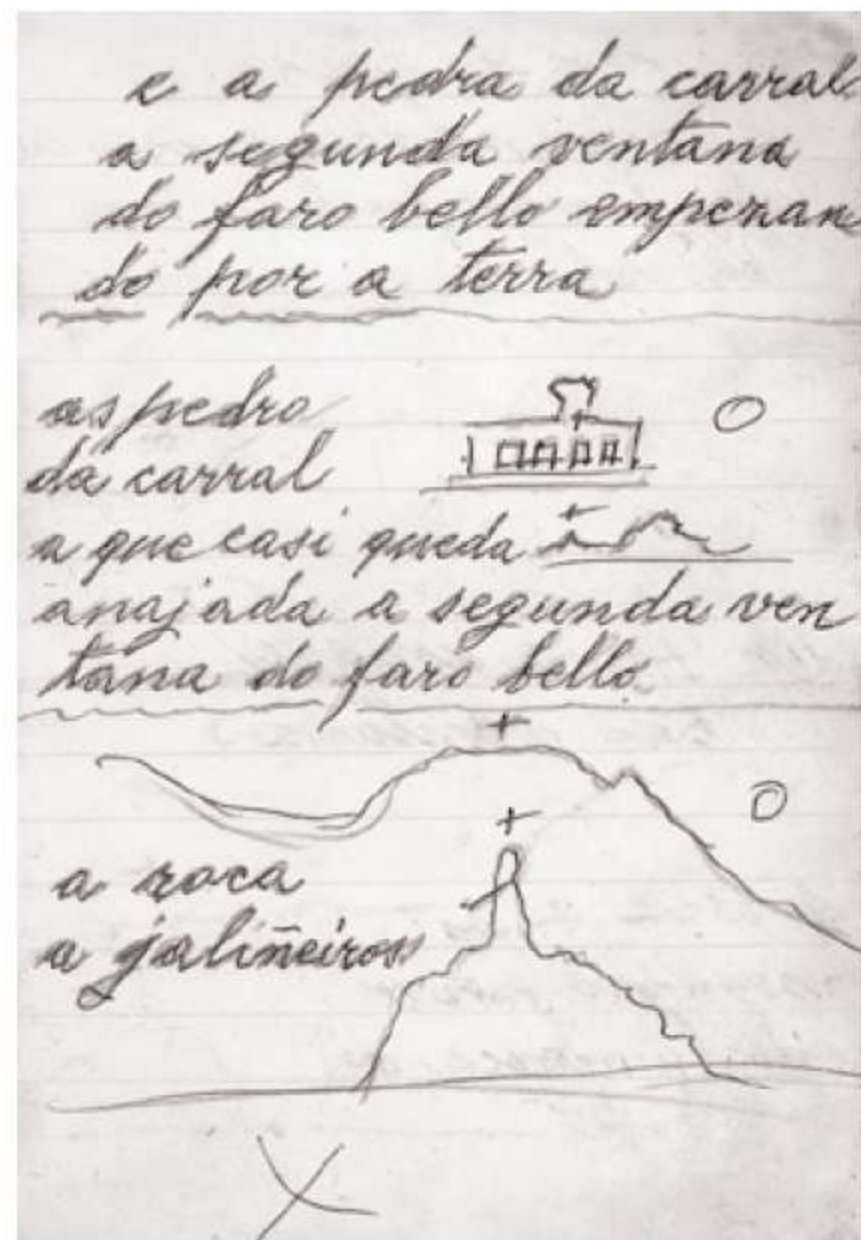 e a pedra da carral
a segunda ventana
do faro bello empezan
do por a terra
as pedro
da carral
a que casi queda
anajada a segunda ven
tana do faro bello
a roca
a galiñeiros